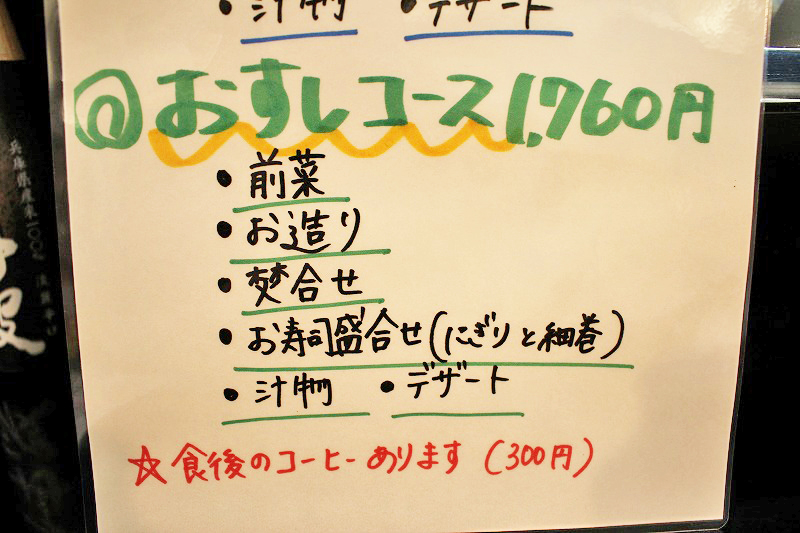 ・汁物 ・デザート
おすしコース 1,760円
・前菜
・お造り
・焚合せ
・お寿司盛合せ(にぎりと細巻)
・汁物 ・デザート
☆食後のコーヒーあります(300円)